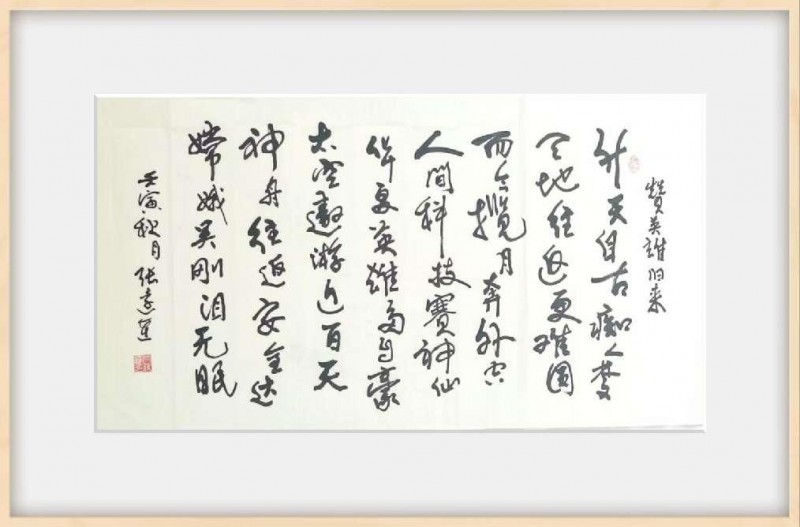 赞英雄归来
升天自古痴人梦
天地往返更难圆
而今揽月奔外空
人间科技赛神仙
华夏英雄自豪
太空遨游近百天
神舟往返安全达
嫦娥吴刚泪无眠
壬寅秋月 张莲